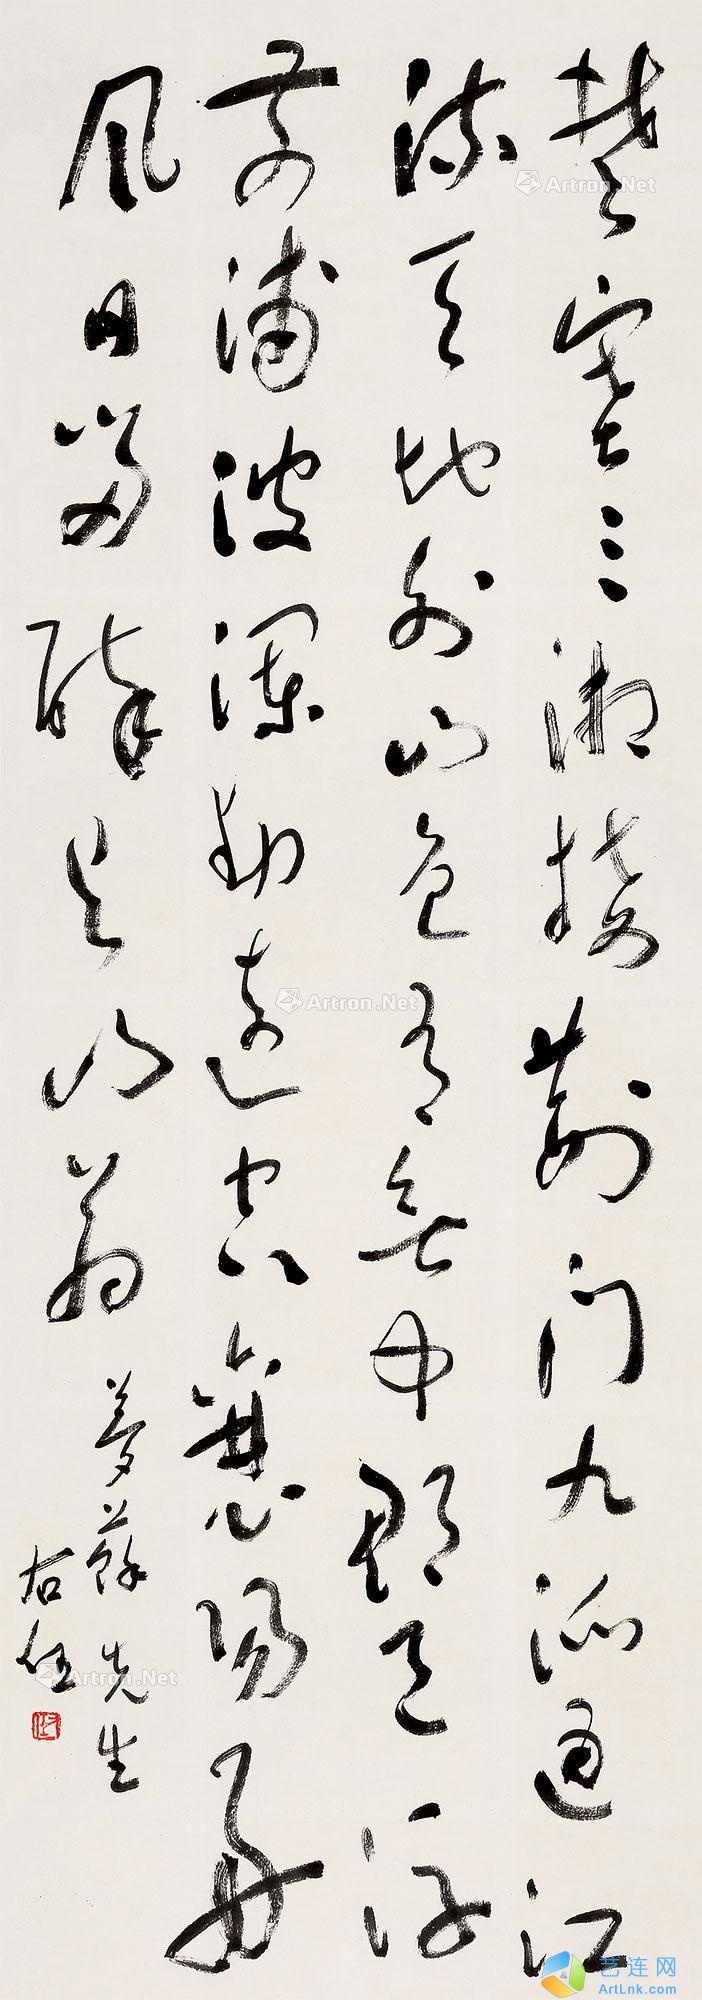 楚塞三湘接荆门九派通江
流天地外山色有无中郡邑浮
前浦波澜动远空襄阳好
风日留醉与山翁
梦苏先生
右任
Artron.Net
Artron.Net
Artron.Net
艺连网
ArtLnk.com